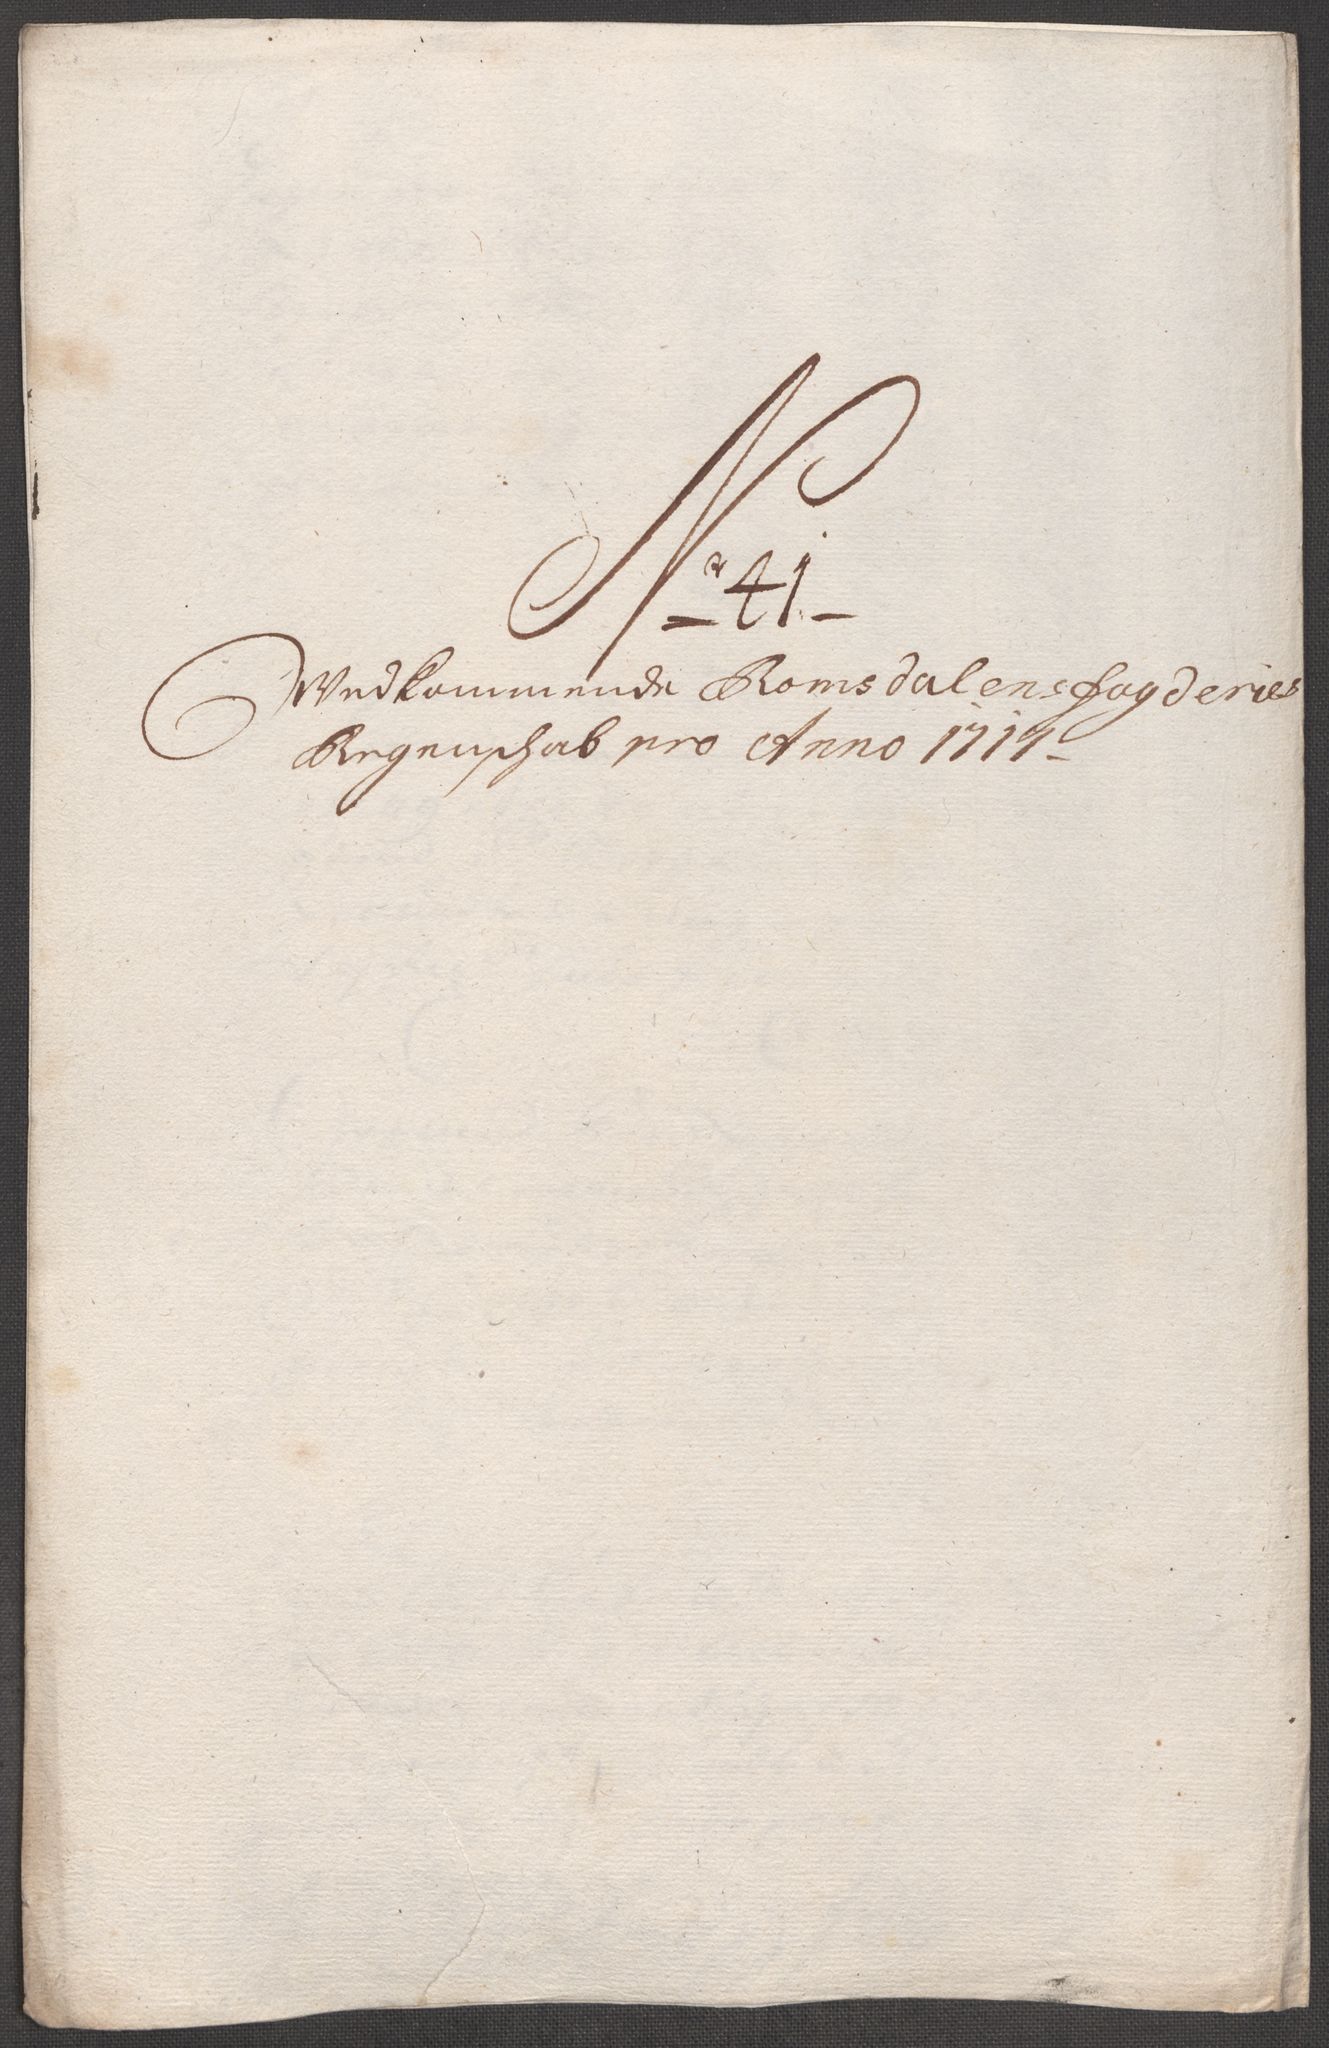 Nr 41
Vedkommende Romsdalens fogderies
Regenschab pro Anno 1717